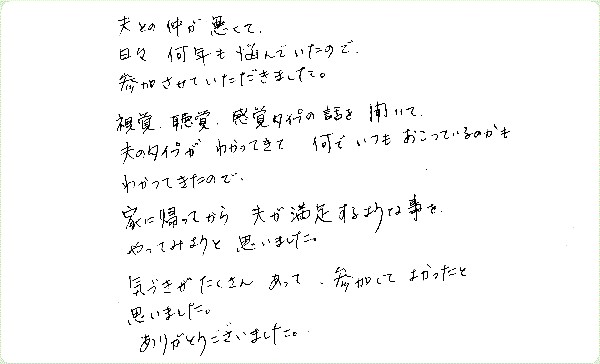 夫との仲が悪くて、
日々 何年も悩んでいたので、
参加させていただきました。
視覚、聴覚、感覚タイプの話を 聞いて、
夫のタイプが わかってきて 何でいつも おこっているのかも
わかってきたので、
家に帰ってから 夫が満足するような事を
やってみようと 思いました。
気づきがたくさん あって、参加して よかったと
思いました。
ありがとうございました。